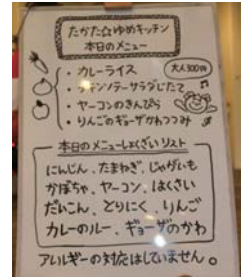 たかた☆ゆめキッチン
本日のメニュー
・カレーライス
大人300円
・チキンソテーサラダじたて
・ヤーコンのきんぴら
・りんごのギョーザかわつつみ
本日のメニューしょくざいリスト
にんじん、たまねぎ、じゃがいも
かぼちゃ、ヤーコン、はくさい
だいこん、とりにく、りんご
カレーのルー、ギョーザのかわ
アレルギーの対応はしていません。